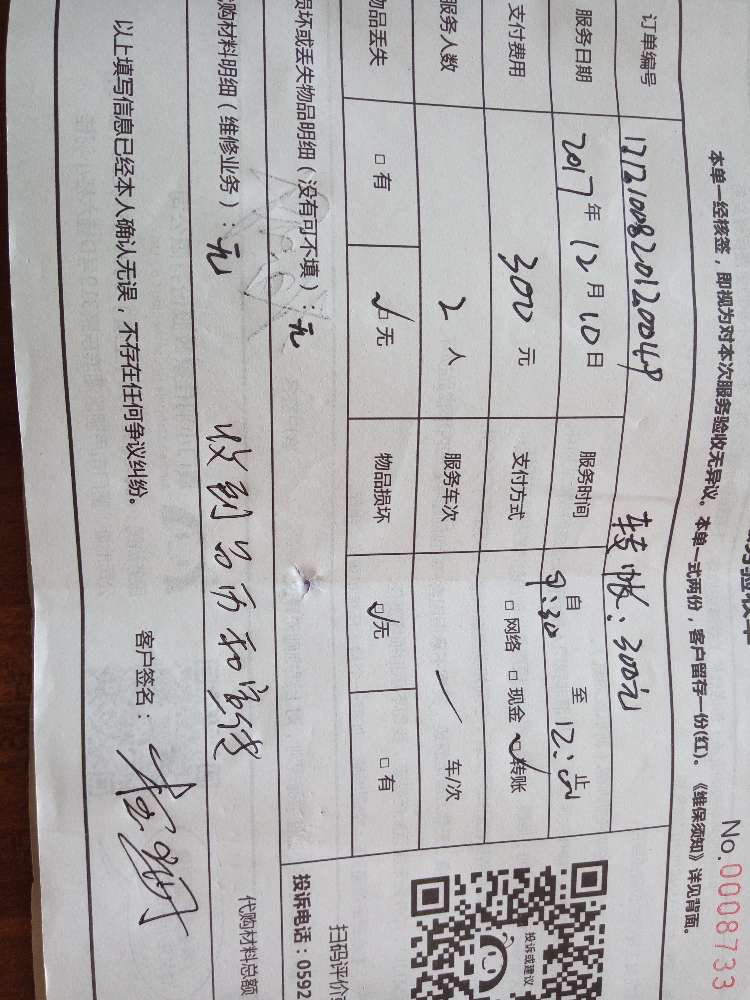 No.0008733
本单一经核签，即视为对本次服务验收无异议。本单一式两份，客户留存一份(红)。《维保须知》详见背面。
订单编号 1712100820120048 转帐：300元
服务日期 2017年12月10日 服务时间 自9:30至 止
支付费用 300元 支付方式 □网络 □现金 ☑转账
服务人数 2人 服务车次 / 车/次
物品丢失 □有 ☑无 物品损坏 ☑无 □有
损坏或丢失物品明细（没有可不填）：无
代购材料明细（维修业务）：无
收到
以上填写信息已经本人确认无误，不存在任何争议纠纷。
客户签名：
投诉或建议
扫码评价
投诉电话：0592
代购材料总额